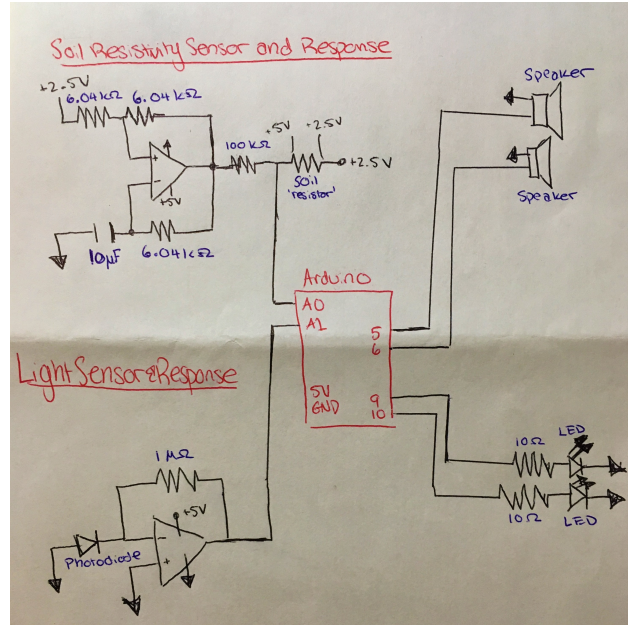 Soil Resistivity Sensor and Response
+2.5V
6.04kΩ 6.04kΩ
+
-
+5V
10µF
6.04kΩ
100kΩ
+5V +2.5V
+2.5V
Soil
'resistor'
Speaker
Speaker
Arduino
A0
A1
5
6
5V
GND
9
10
Light Sensor & Response
1MΩ
+5V
-
+
Photodiode
10Ω
LED
10Ω
LED